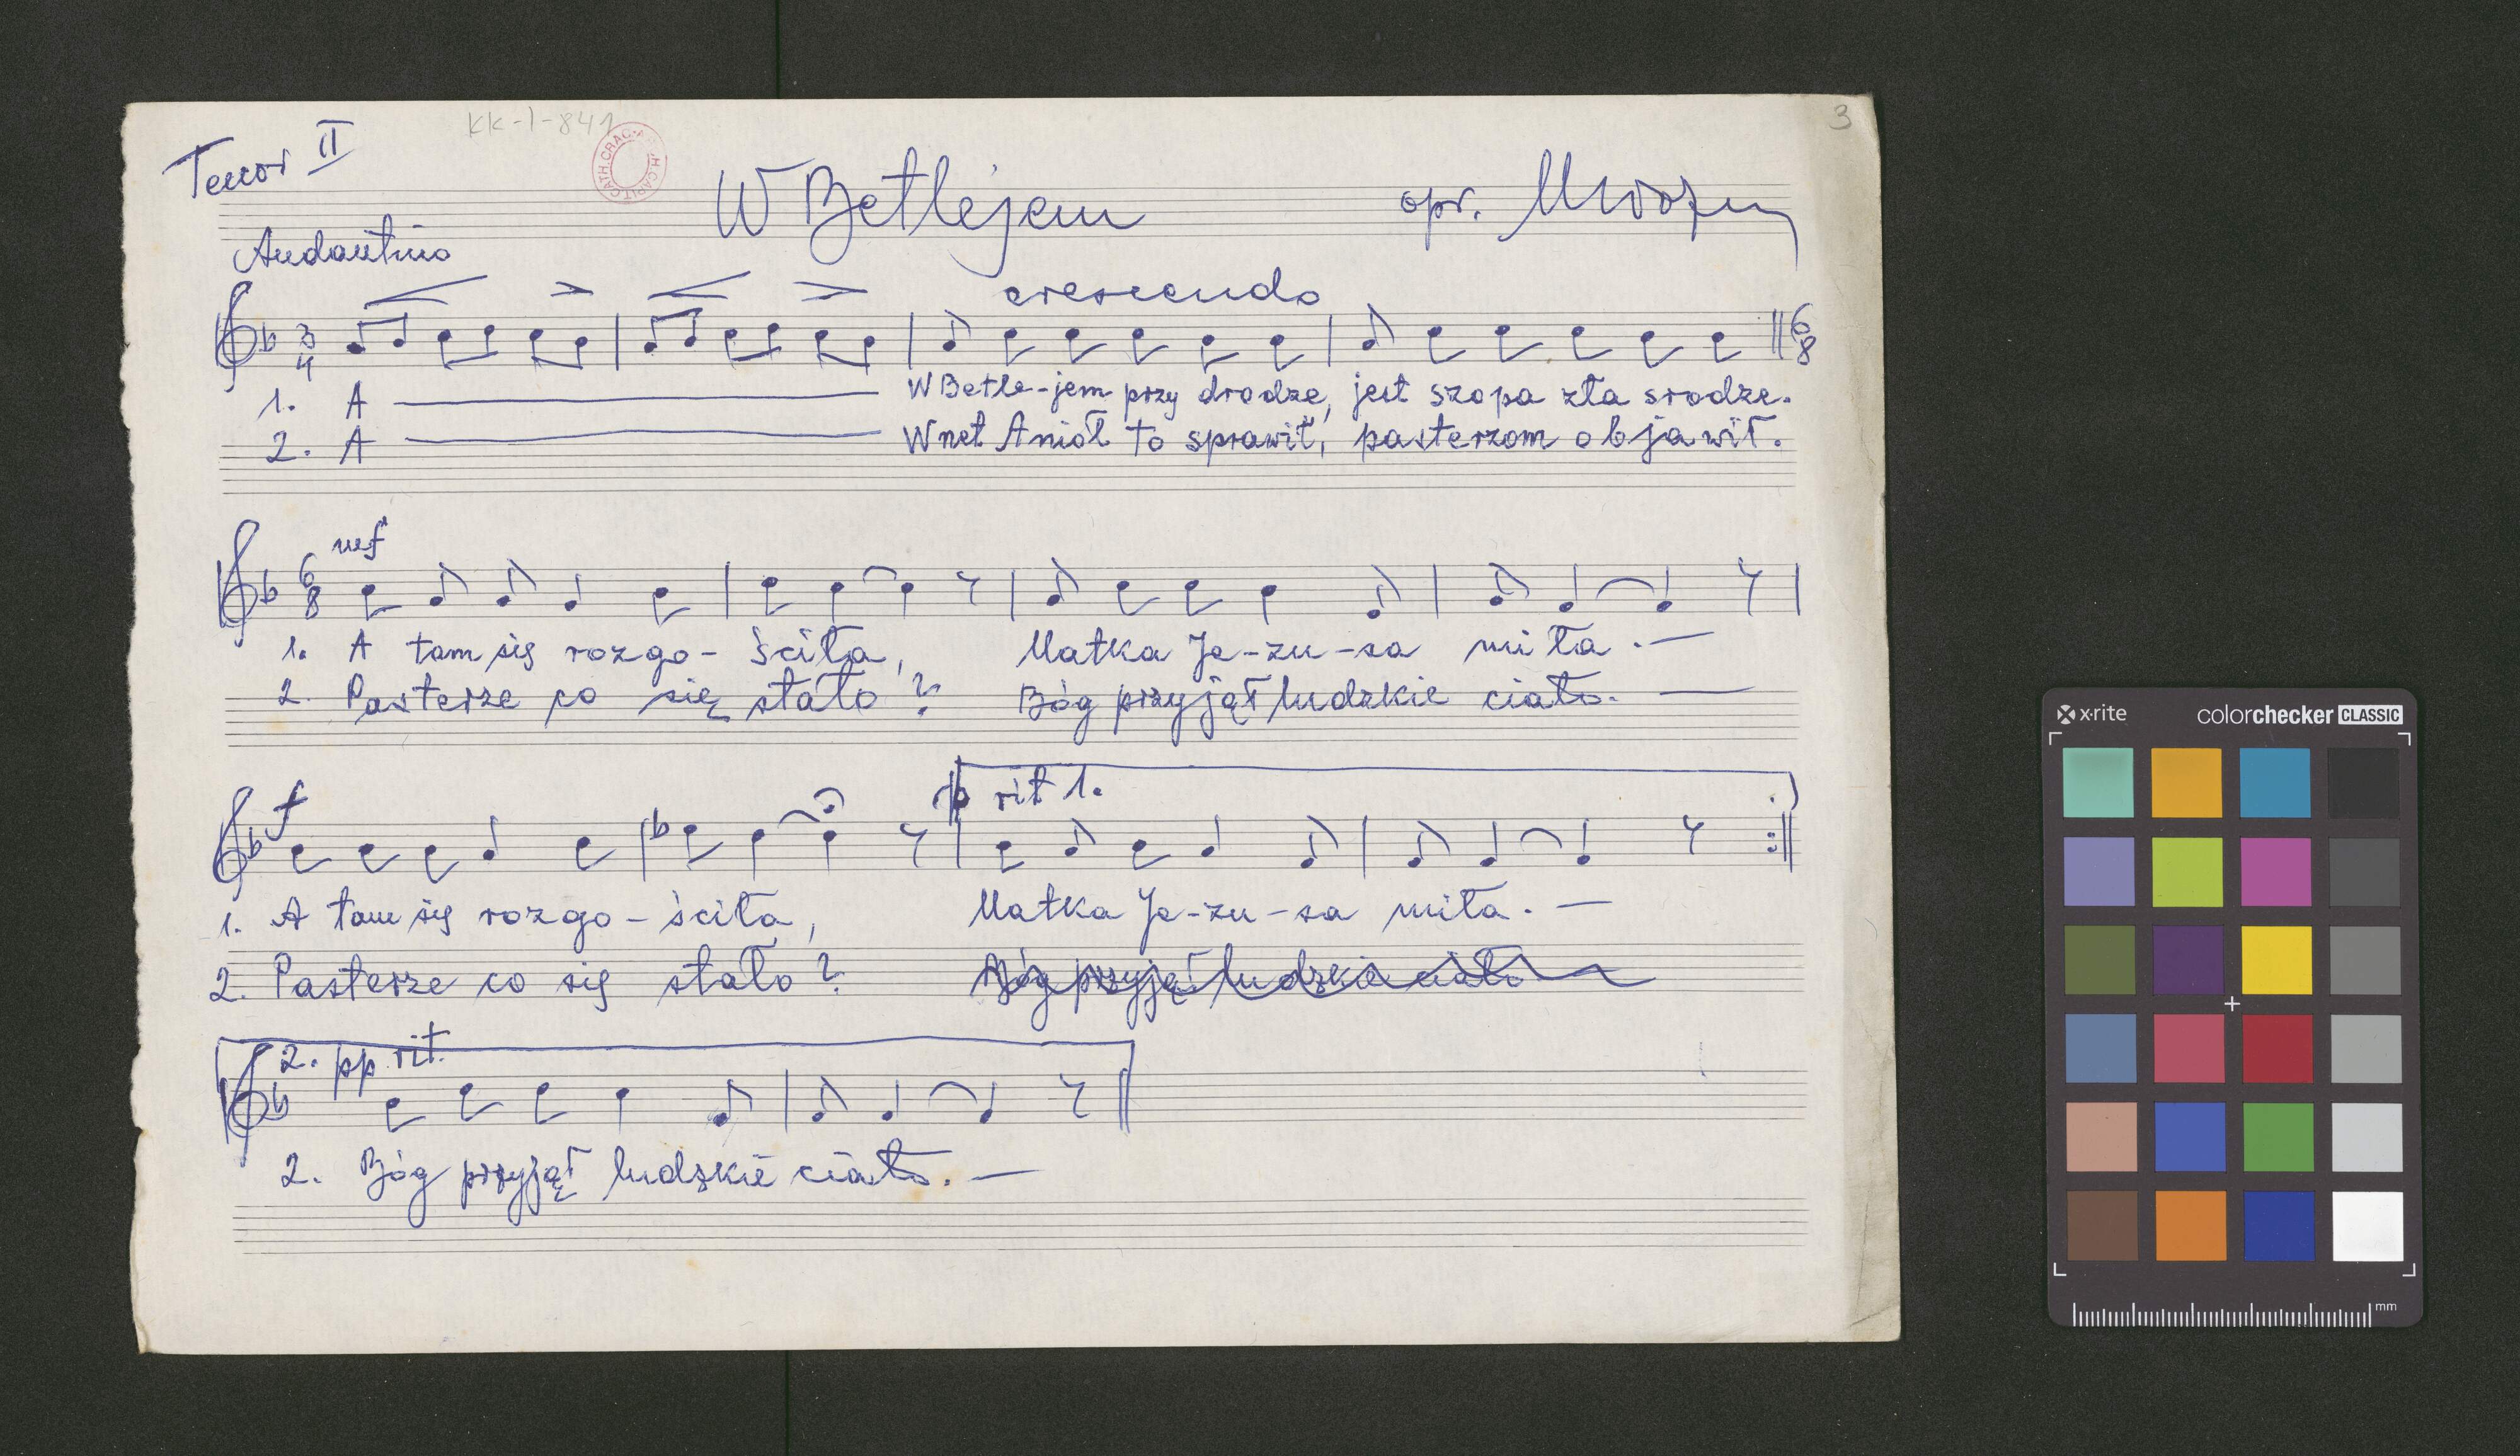 KK-I-841
3
Tenor II
W Betlejem
opr.
Andantino
crescendo
3
4
6
8
1. A W Betle-jem przy drodze, jest szopa zła srodze.
2. A Wnet Anioł to sprawił, pasterzom objawił.
mf
6
8
1. A tam się rozgo-ściła, Matka Je-zu-sa miła. —
2. Pasterze co się stało? Bóg przyjął ludzkie ciało. —
f
p rit 1.
1. A tam się rozgo-ściła, Matka Je-zu-sa miła. —
2. Pasterze co się stało? Bóg przyjął ludzkie ciało
2. pp rit.
2. Bóg przyjął ludzkie ciało. —
x·rite colorchecker CLASSIC
mm